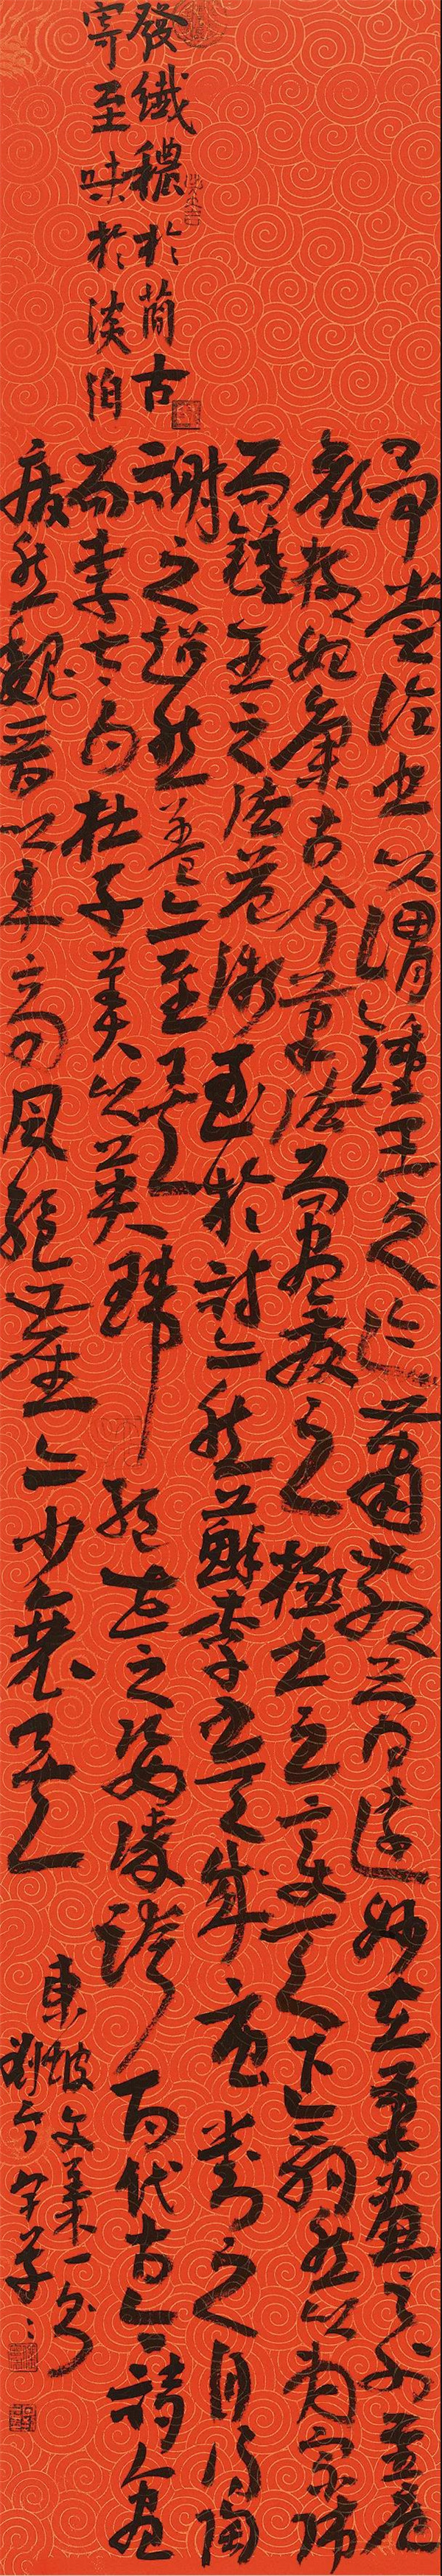 發纖穠於簡古
寄至味於淡泊
予嘗論書以謂鍾王之迹蕭散簡遠妙在筆畫之外至唐
顏柳始集古今筆法而盡發之極書之變天下翕然以為宗師
而鍾王之法益微至於詩亦然蘇李之天成曹劉之自得陶
謝之超然蓋亦至矣
而李太白杜子美以英瑋絕世之姿凌跨百代古今詩人盡
廢然魏晉以來高風絕塵亦少衰矣
東坡文集一則